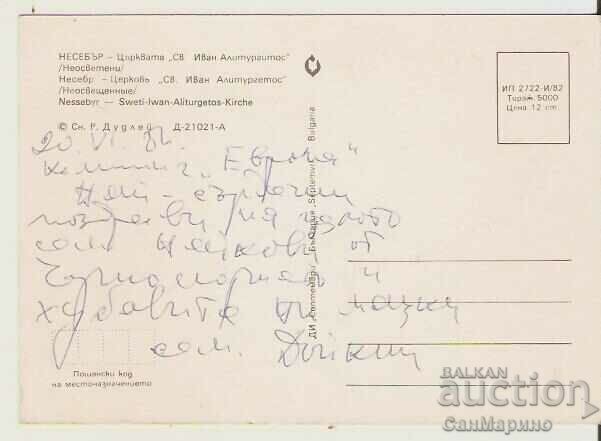 НЕСЕБЪР – Църквата „Св. Иван Алитургитос"
/Неосветени/
Несебр – Церковь „Св. Иван Алитургетос"
/Неосвещенные/
Nessebyr — Sweti-Iwan-Aliturgetos-Kirche
© Сн. Р. Дудлев Д-21021-А
ИП 2722-И/82
Тираж 5000
Цена 12 ст.
ДИ „Септември" България „Septemvri" Bulgaria
20. VI. 82.
Къмпинг „Европа"
Най-сърдечни
поздрави на цялото
сем. от
Черноморието и
хубавите му
сем. Дойкин
Пощенски код
на местоназначението
BALKAN
auction
СанМарино